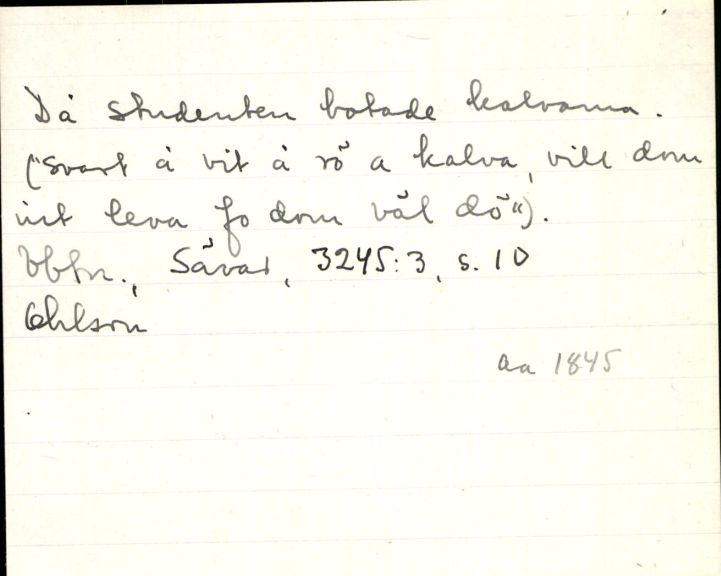 Då studenten botade kalvarna.
("Svart å vit å rö a kalva, vill dom
int leva fo dom väl dö").
Vbtn., Sävar, 3245:3, s. 10
Ohlson
Aa 1845